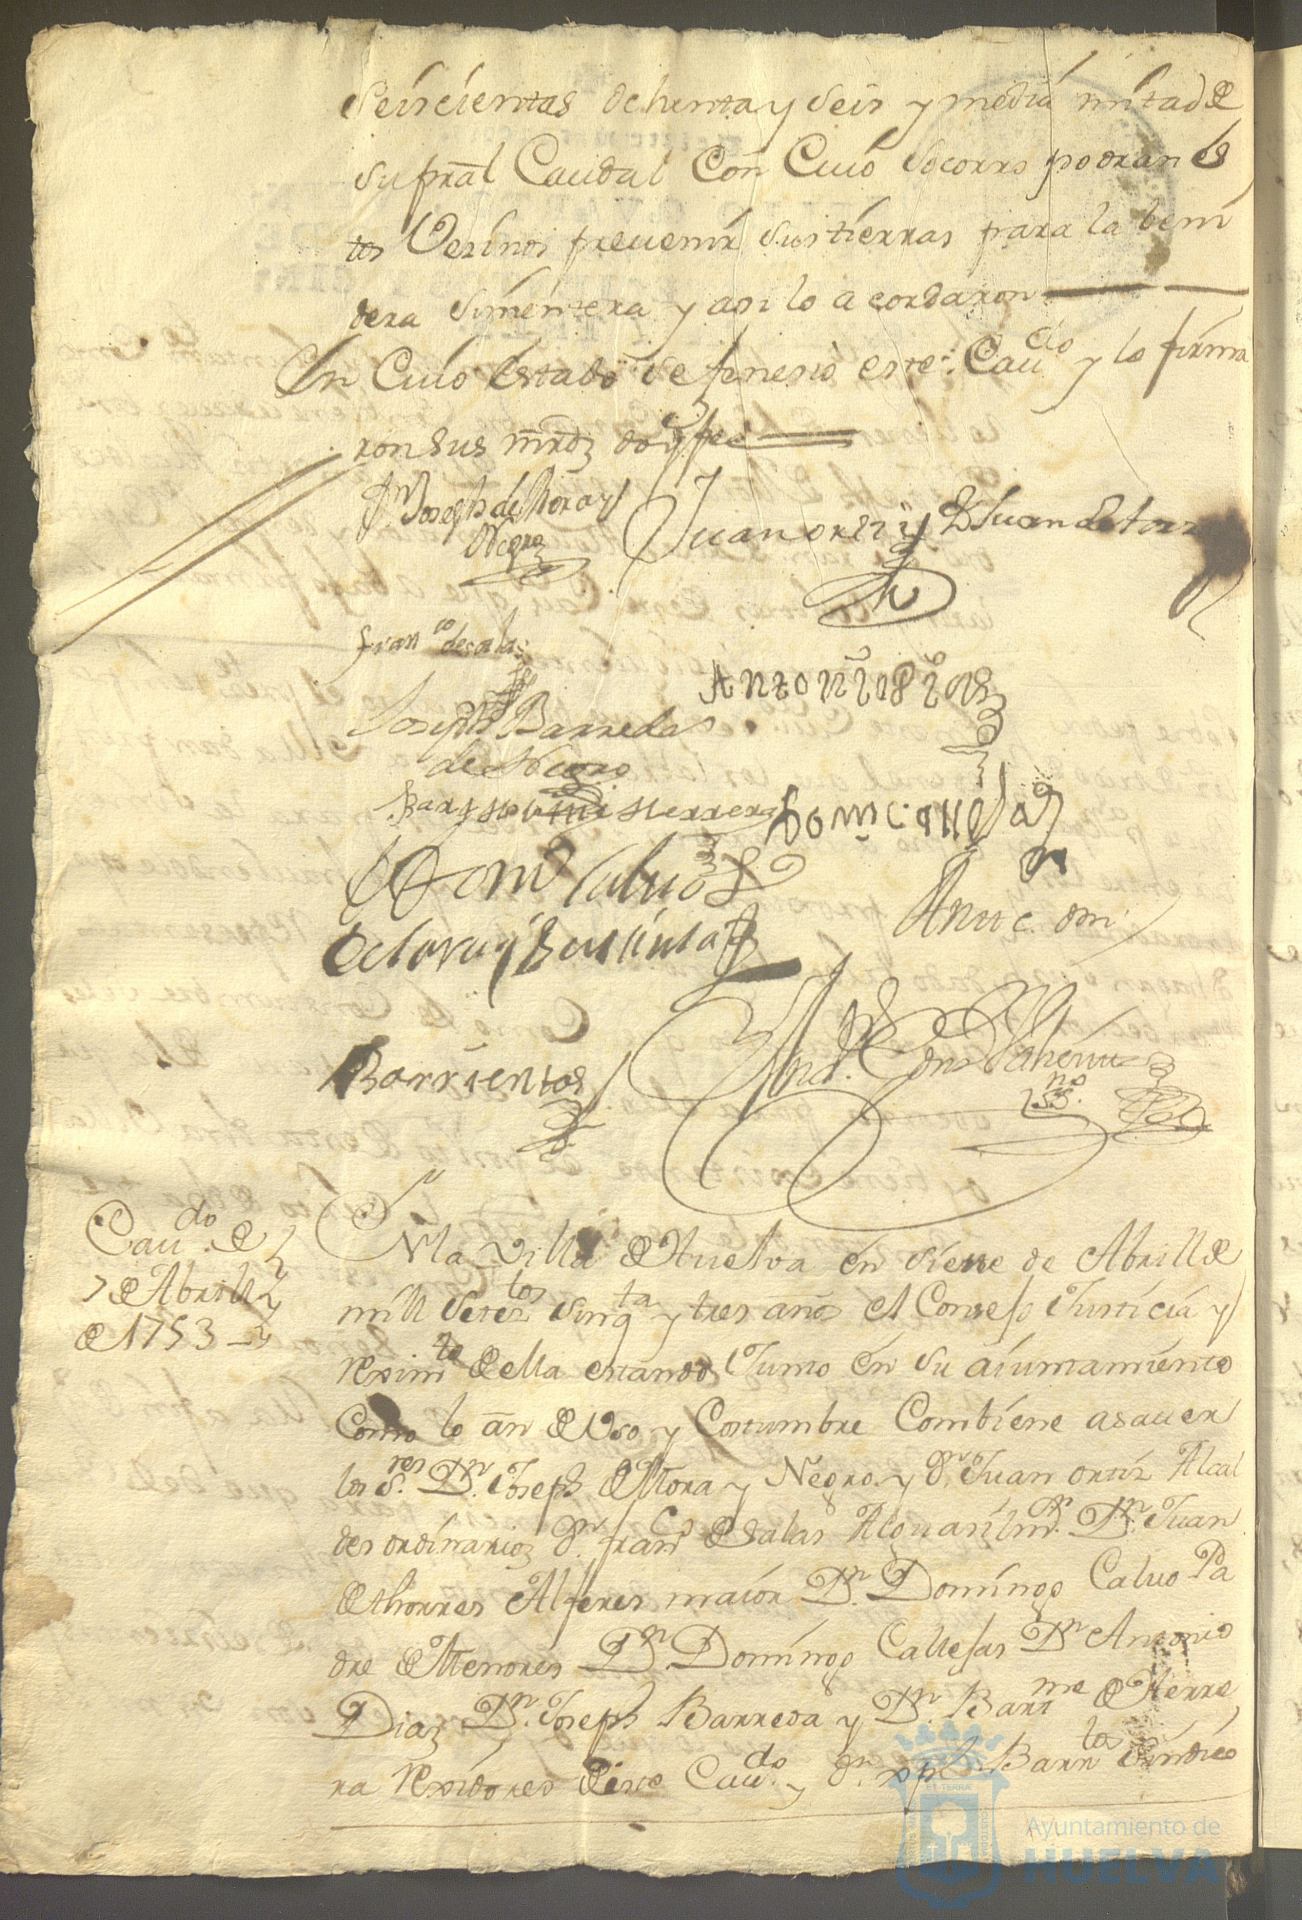 Seiscientas ochenta y seis y media mitad de
su pral Caudal Con Cuio Socorro podran es
tos Vesinos prevenir sus tierras para la beni
dera simentera y asi lo acordaron
En Cuio estado se fenesio este Caudo y lo firma
ron sus mrdz doy fee
Dn Joseph de Mora y
Negro
Juan ortiz
Dn Juan de torres
Franco de salas
Antonio Dias
Joseph Barreda
de Negro
Bartholome Herrera
Domo. Callejas
Domo Calvo
Barrientos
Ante mi
Caudo de
7 de Abrill
de 1753
En la Villa de Huelva en siete de Abrill de
mill setezos sinqta y tres años el Consejo Justicia y
reximto de ella estando Junto en su aiuntamiento
Como lo an de Uso y Costumbre Combiene asaver
los Sres. Dn. Joseph de Mora y Negro y Dn Juan ortiz Alcal
des ordinarios Dn franco de Salas Alguasil mr. Dn Juan
de thorres Alferes maior Dn. Domingo Calvo Pa
dre de Menores Dn Domingo Callejas Dn Antonio
Diaz Dn. Joseph Barreda y Dn. Bartme de Herre
ra Rexidores de este Caudo. y Dn xpl Barrtos Sindico
Ayuntamiento de
HUELVA